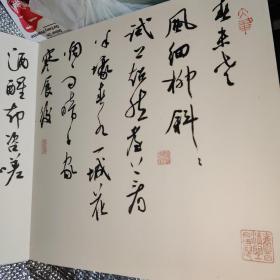 春未老
風細柳斜〻
試上超然臺上看
半壕春水一城花
烟雨暗千家
寒食後
酒醒却咨嗟